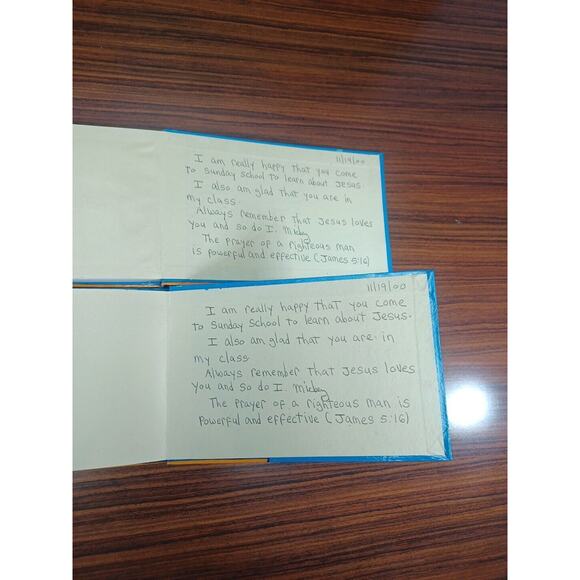 11/19/00
I am really happy that you come
to Sunday school to learn about Jesus.
I also am glad that you are in
my class.
Always remember that Jesus loves
you and so do I. Mickey
The prayer of a righteous man
is powerful and effective (James 5:16)
11/19/00
I am really happy that you come
to Sunday School to learn about Jesus.
I also am glad that you are in
my class.
Always remember that Jesus loves
you and so do I. Mickey
The prayer of a righteous man is
powerful and effective (James 5:16)